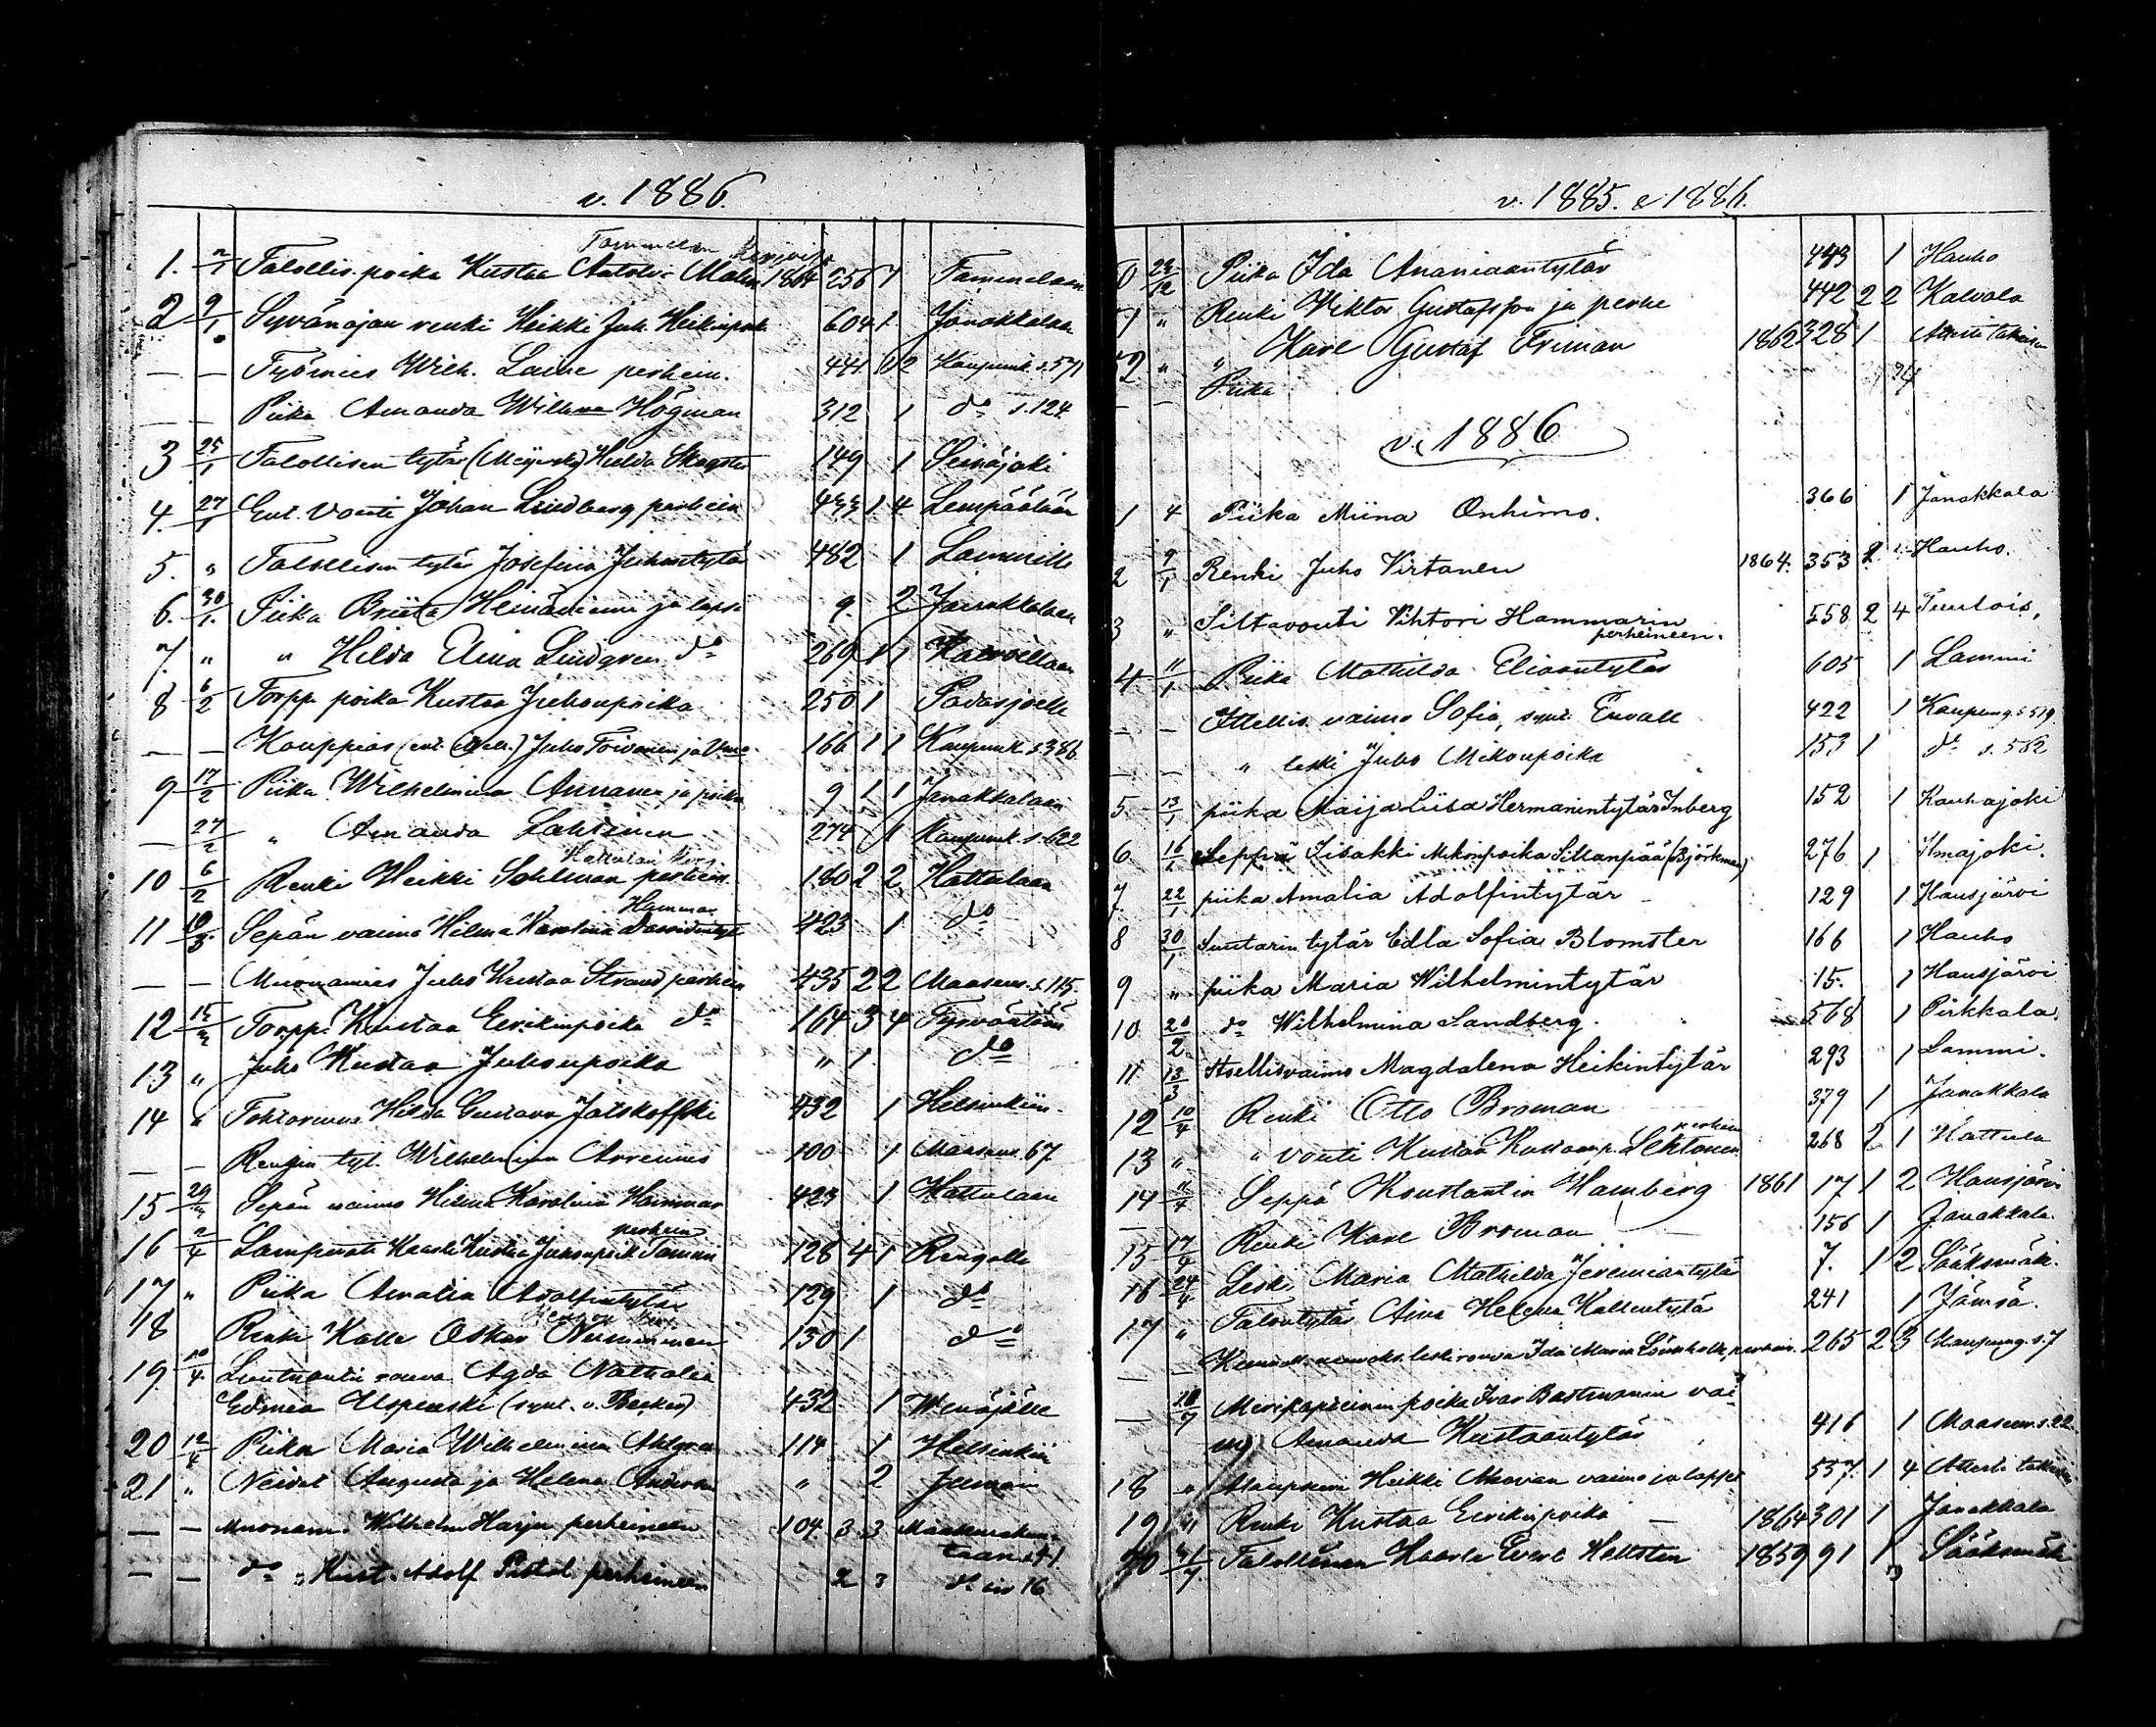 v. 1886.
Tammelan
1. 2/1 Talollis. poika Kustaa Malin 1864 256 1 Tammelaan
2 9/1 Syvänojan renki Heikki Juh. Heikinpoik 604 1 Janakkalaan
— — Työmies Wilh. Laine perhein. 441 2 Kaupunk. s. 571
— — Piika Amanda Högman 312 1 do s. 124
3 25/1 Talollisen tytär Hilda 149 1 Seinäjoki
4. 27/1 Ent. Vouti Johan Lindberg perheen 433 1 4 Lempäälään
5. " Talollisen tytär Josefina Juhontytär 482 1 Lammille
6. 30/1 Piika Briita Heinäniemi ja lapsi 9. 2 Janakkalaan
7. " " Hilda Elina Lindgren do 269 1 1 Kalvollaan
8 6/2 Torpp. poika Kustaa Juhonpoika 250 1 Padasjoelle
— — Kauppias Juho Toivonen ja 166 1 1 Kaupunk. s. 386
9 17/2 Piika Wilhelmina Annanen ja poika 9 1 1 Janakkalaan
— 27/2 " Amanda Lahtinen 274 1 Kaupunk. s. 622
Hattulan
10 6/2 Renki Heikki Sohlman perhein. 180 2 2 Hattulaan
Hammar
11 10/3 Sepän vaimo Hilma Karolina 423 1 do
— — Muonamies Juho Kustaa Strand perhein 435 2 2 Maaseur. s. 115.
12 15/3 Torpp. Kustaa Eerikinpoika do 164 3 4 Tyrväntöön
13 " Juho Kustaa Juhonpoika " 1 do
14 " Tohtorinna Hilda Gustava Jatskoffski 432 1 Helsinkiin.
— — Rengin tyt. Wilhelmina Arrenius 100 1 Maaseur. 67
15 29/3 Sepän vaimo Hilma Karolina Hammar 423 1 Hattulaan
perhein
16 2/4 Lampuoti Kaarle Kustaa Juhonpoik Tammi 128 4 1 Rengolle
17 " Piika Amalia Adolfintytär 129 1 do
18 Renki Kalle Oskar Nurminen 130 1 do
19. 10/4 Luutnantin rouva Agda Nathalia
Edmea Uspenski (synt. v. Becker) 432 1
20 12/4 Piika Maria Wilhelmina Ahlgren 114 1 Helsinkiin
21 " Neidet Augusta ja Helena " 2
— — Muonam. Wilhelm Harju perheineen 104 3 3 Maaseurakun-
taan s. 41
— — do " Kust. Adolf Pistol perheineen 2 3 do 16
v. 1885. & 1886.
50 23/12 Piika Ida Ananiaantytär 443 1 Hauho
51 " Renki Viktor Gustafsson ja perhe 442 2 2 Kalvola
52 " " Karl Gustaf Friman 1862 328 1
— — Piika
v. 1886
1 4 Piika Miina Onhimo. 366 1 Janakkala
2 9/1 Renki Juho Virtanen 1864. 353 2 Hauho.
3 " Siltavouti Vihtori Hammarin 558 2 4 Tuulois.
perheineen.
4 11/1 Piika Mathilda Eliaantytär 605 1 Lammi
— — Itsellis. vaimo Sofia, synt. Envall 422 1 Kaupung. s. 519.
— — " leski Juho Mikonpoika 153 1 do s. 562
5 13/1 piika Maija Liisa Hermanintytär Inberg 152 1 Kauhajoki
6 16/1 Seppä Iisakki Mikonpoika Sillanpää (Björkman) 276 1 Ilmajoki.
7 22/1 piika Amalia Adolfintytär 129 1 Hausjärvi
8 30/1 Suutarin tytär Edla Sofia Blomster 166 1 Hauho
9 " piika Maria Wilhelmintytär 15. 1 Hausjärvi
10 20/2 do Wilhelmina Sandberg. 568 1 Pirkkala.
11 13/3 Itsellisvaimo Magdalena Heikintytär 293 1 Lammi.
12 10/4 Renki Otto Broman 379 1 Janakkala
perhein
13 " " vouti Kustaa Kustaanp. Lehtonen 268 2 1 Hattula
14 11/4 Seppä Konstantin Hamberg 1861 17 1 2 Hausjärvi
15 17/4 Renki Karl Broman 156 1 Janakkala.
16 24/4 Leski Maria Mathilda Jeremiantytär 7. 1 2 Sääksmäki.
17 " Talontytär Aina Helena Kallentytär 241 1 Jämsä.
— — leskirouva Ida Maria 265 2 3 Kaupung. s. 7
— 10/7 Merikapteenin poika Ivar Bastmanin vai-
mo Amanda Kustaantytär 416 1 Maaseur. s. 22
18 " Heikki vaimo ja lapset 557. 1 4
19 " Renki Kustaa Eerikinpoika — 1864 301 1 Janakkala
20 31/7 Talollinen Kaarle Evert Hellsten 1859 91 1 Sääksmäki